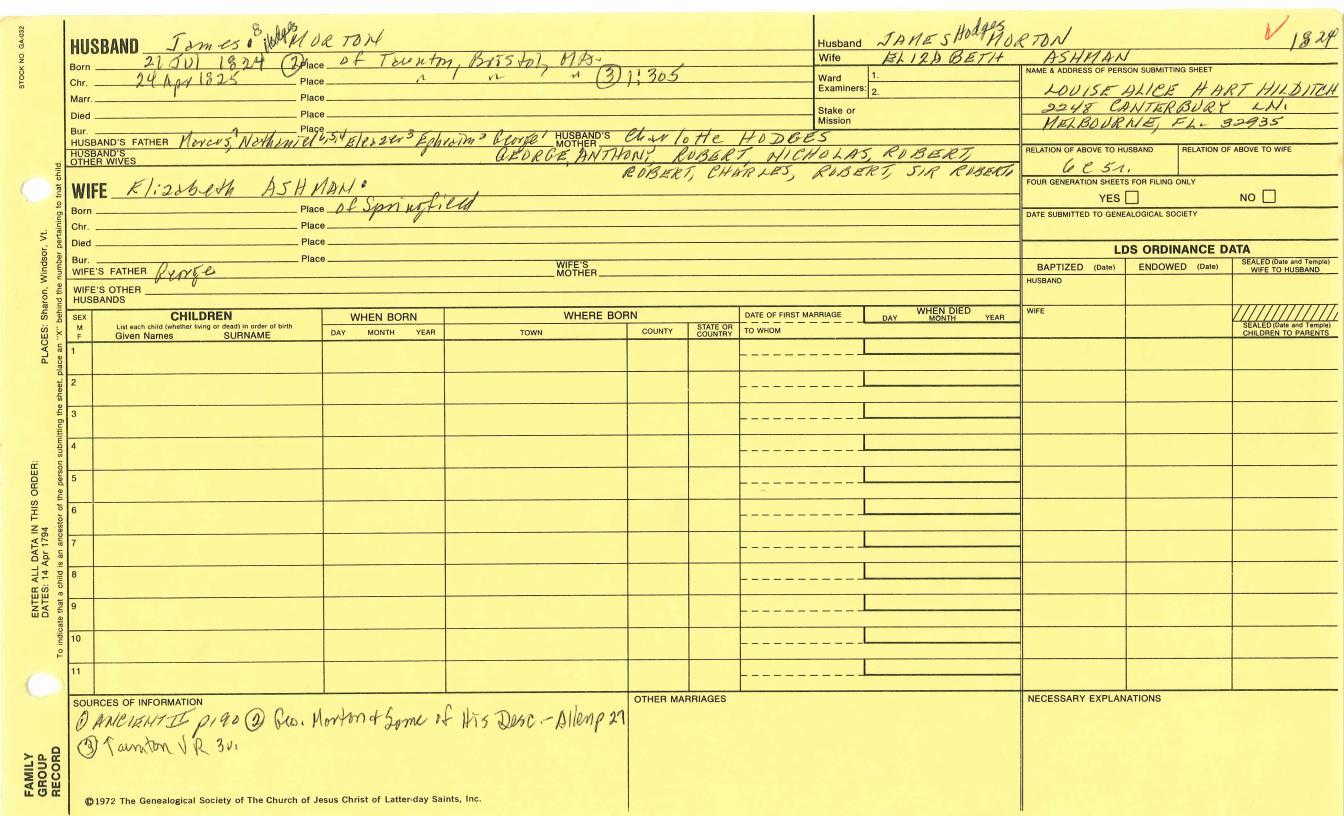 STOCK NO GA-032
HUSBAND James 8 Hodges MORTON
Born 21 JUl 1824 ② Place of Taunton, Bristol, MA.
Chr. 24 Apr 1825 Place " " " ③ 1:305
Marr. Place
Died Place
Bur. Place
HUSBAND'S FATHER Marcus, Nathaniel 6,5,4 Eleazer 3 Ephraim 2 George 1 HUSBAND'S MOTHER Charlotte HODGES
HUSBAND'S OTHER WIVES GEORGE, ANTHONY, ROBERT, NICHOLAS, ROBERT,
ROBERT, CHARLES, ROBERT, SIR ROBERT,
WIFE Elizabeth ASHMAN
Born Place of Springfield
Chr. Place
Died Place
Bur. Place
WIFE'S FATHER George WIFE'S MOTHER
WIFE'S OTHER HUSBANDS
Husband JAMES Hodges MORTON 1824
Wife ELIZABETH ASHMAN
Ward Examiners: 1.
2.
Stake or Mission
NAME & ADDRESS OF PERSON SUBMITTING SHEET
LOUISE ALICE HART HILDITCH
2248 CANTERBURY LN.
MELBOURNE, FL. 32935
RELATION OF ABOVE TO HUSBAND RELATION OF ABOVE TO WIFE
6 C 5 r.
FOUR GENERATION SHEETS FOR FILING ONLY
YES NO
DATE SUBMITTED TO GENEALOGICAL SOCIETY
LDS ORDINANCE DATA
BAPTIZED (Date) ENDOWED (Date) SEALED (Date and Temple) WIFE TO HUSBAND
HUSBAND
WIFE
SEALED (Date and Temple) CHILDREN TO PARENTS
SEX M F
CHILDREN
List each child (whether living or dead) in order of birth
Given Names SURNAME
WHEN BORN
DAY MONTH YEAR
WHERE BORN
TOWN COUNTY STATE OR COUNTRY
DATE OF FIRST MARRIAGE
TO WHOM
WHEN DIED
DAY MONTH YEAR
1
2
3
4
5
6
7
8
9
10
11
SOURCES OF INFORMATION
① ANCIENT II p190 ② Geo. Morton & Some of His Desc. - Allen p 27
③ Taunton VR 3v.
OTHER MARRIAGES
NECESSARY EXPLANATIONS
©1972 The Genealogical Society of The Church of Jesus Christ of Latter-day Saints, Inc.
FAMILY GROUP RECORD
ENTER ALL DATA IN THIS ORDER:
DATES: 14 Apr 1794
PLACES: Sharon, Windsor, Vt.
To indicate that a child is an ancestor of the person submitting the sheet, place an "X" behind the number pertaining to that child.